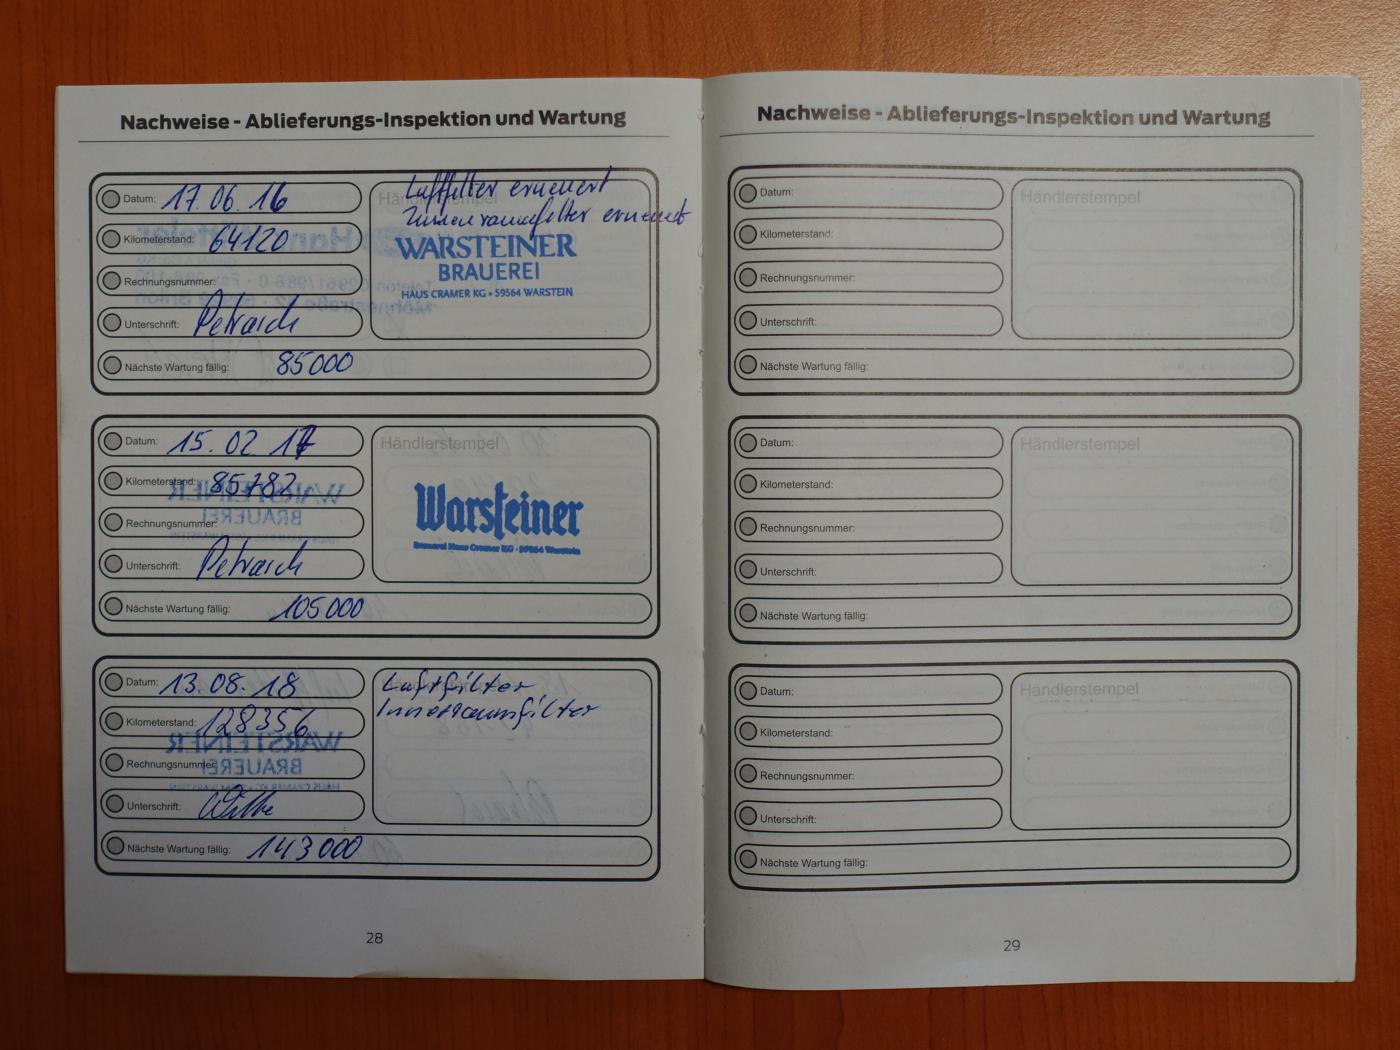 Nachweise - Ablieferungs-Inspektion und Wartung
Datum: 17.06.16
Kilometerstand: 64120
Rechnungsnummer:
Unterschrift: Petrasch
Händlerstempel
Luftfilter erneuert
Innenraumfilter erneuert
WARSTEINER
BRAUEREI
HAUS CRAMER KG • 59564 WARSTEIN
Nächste Wartung fällig: 85000
Datum: 15.02.17
Kilometerstand: 85782
Rechnungsnummer:
Unterschrift: Petrasch
Händlerstempel
Warsteiner
Brauerei Haus Cramer KG • 59564 Warstein
Nächste Wartung fällig: 105000
Datum: 13.08.18
Kilometerstand: 128356
Rechnungsnummer:
Unterschrift:
Luftfilter
Innenraumfilter
Nächste Wartung fällig: 143000
28
Nachweise - Ablieferungs-Inspektion und Wartung
Datum:
Kilometerstand:
Rechnungsnummer:
Unterschrift:
Händlerstempel
Nächste Wartung fällig:
Datum:
Kilometerstand:
Rechnungsnummer:
Unterschrift:
Händlerstempel
Nächste Wartung fällig:
Datum:
Kilometerstand:
Rechnungsnummer:
Unterschrift:
Händlerstempel
Nächste Wartung fällig:
29